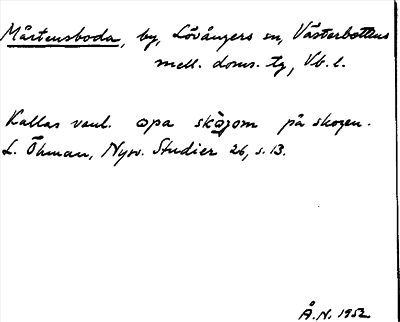 Mårtensboda, by, Lövångers sn, Västerbottens
mell. doms. tg, Vb. l.
Kallas vanl. opa skogom på skogen.
L. Öhman, Nysv. Studier 26, s. 13.
Å.N. 1952